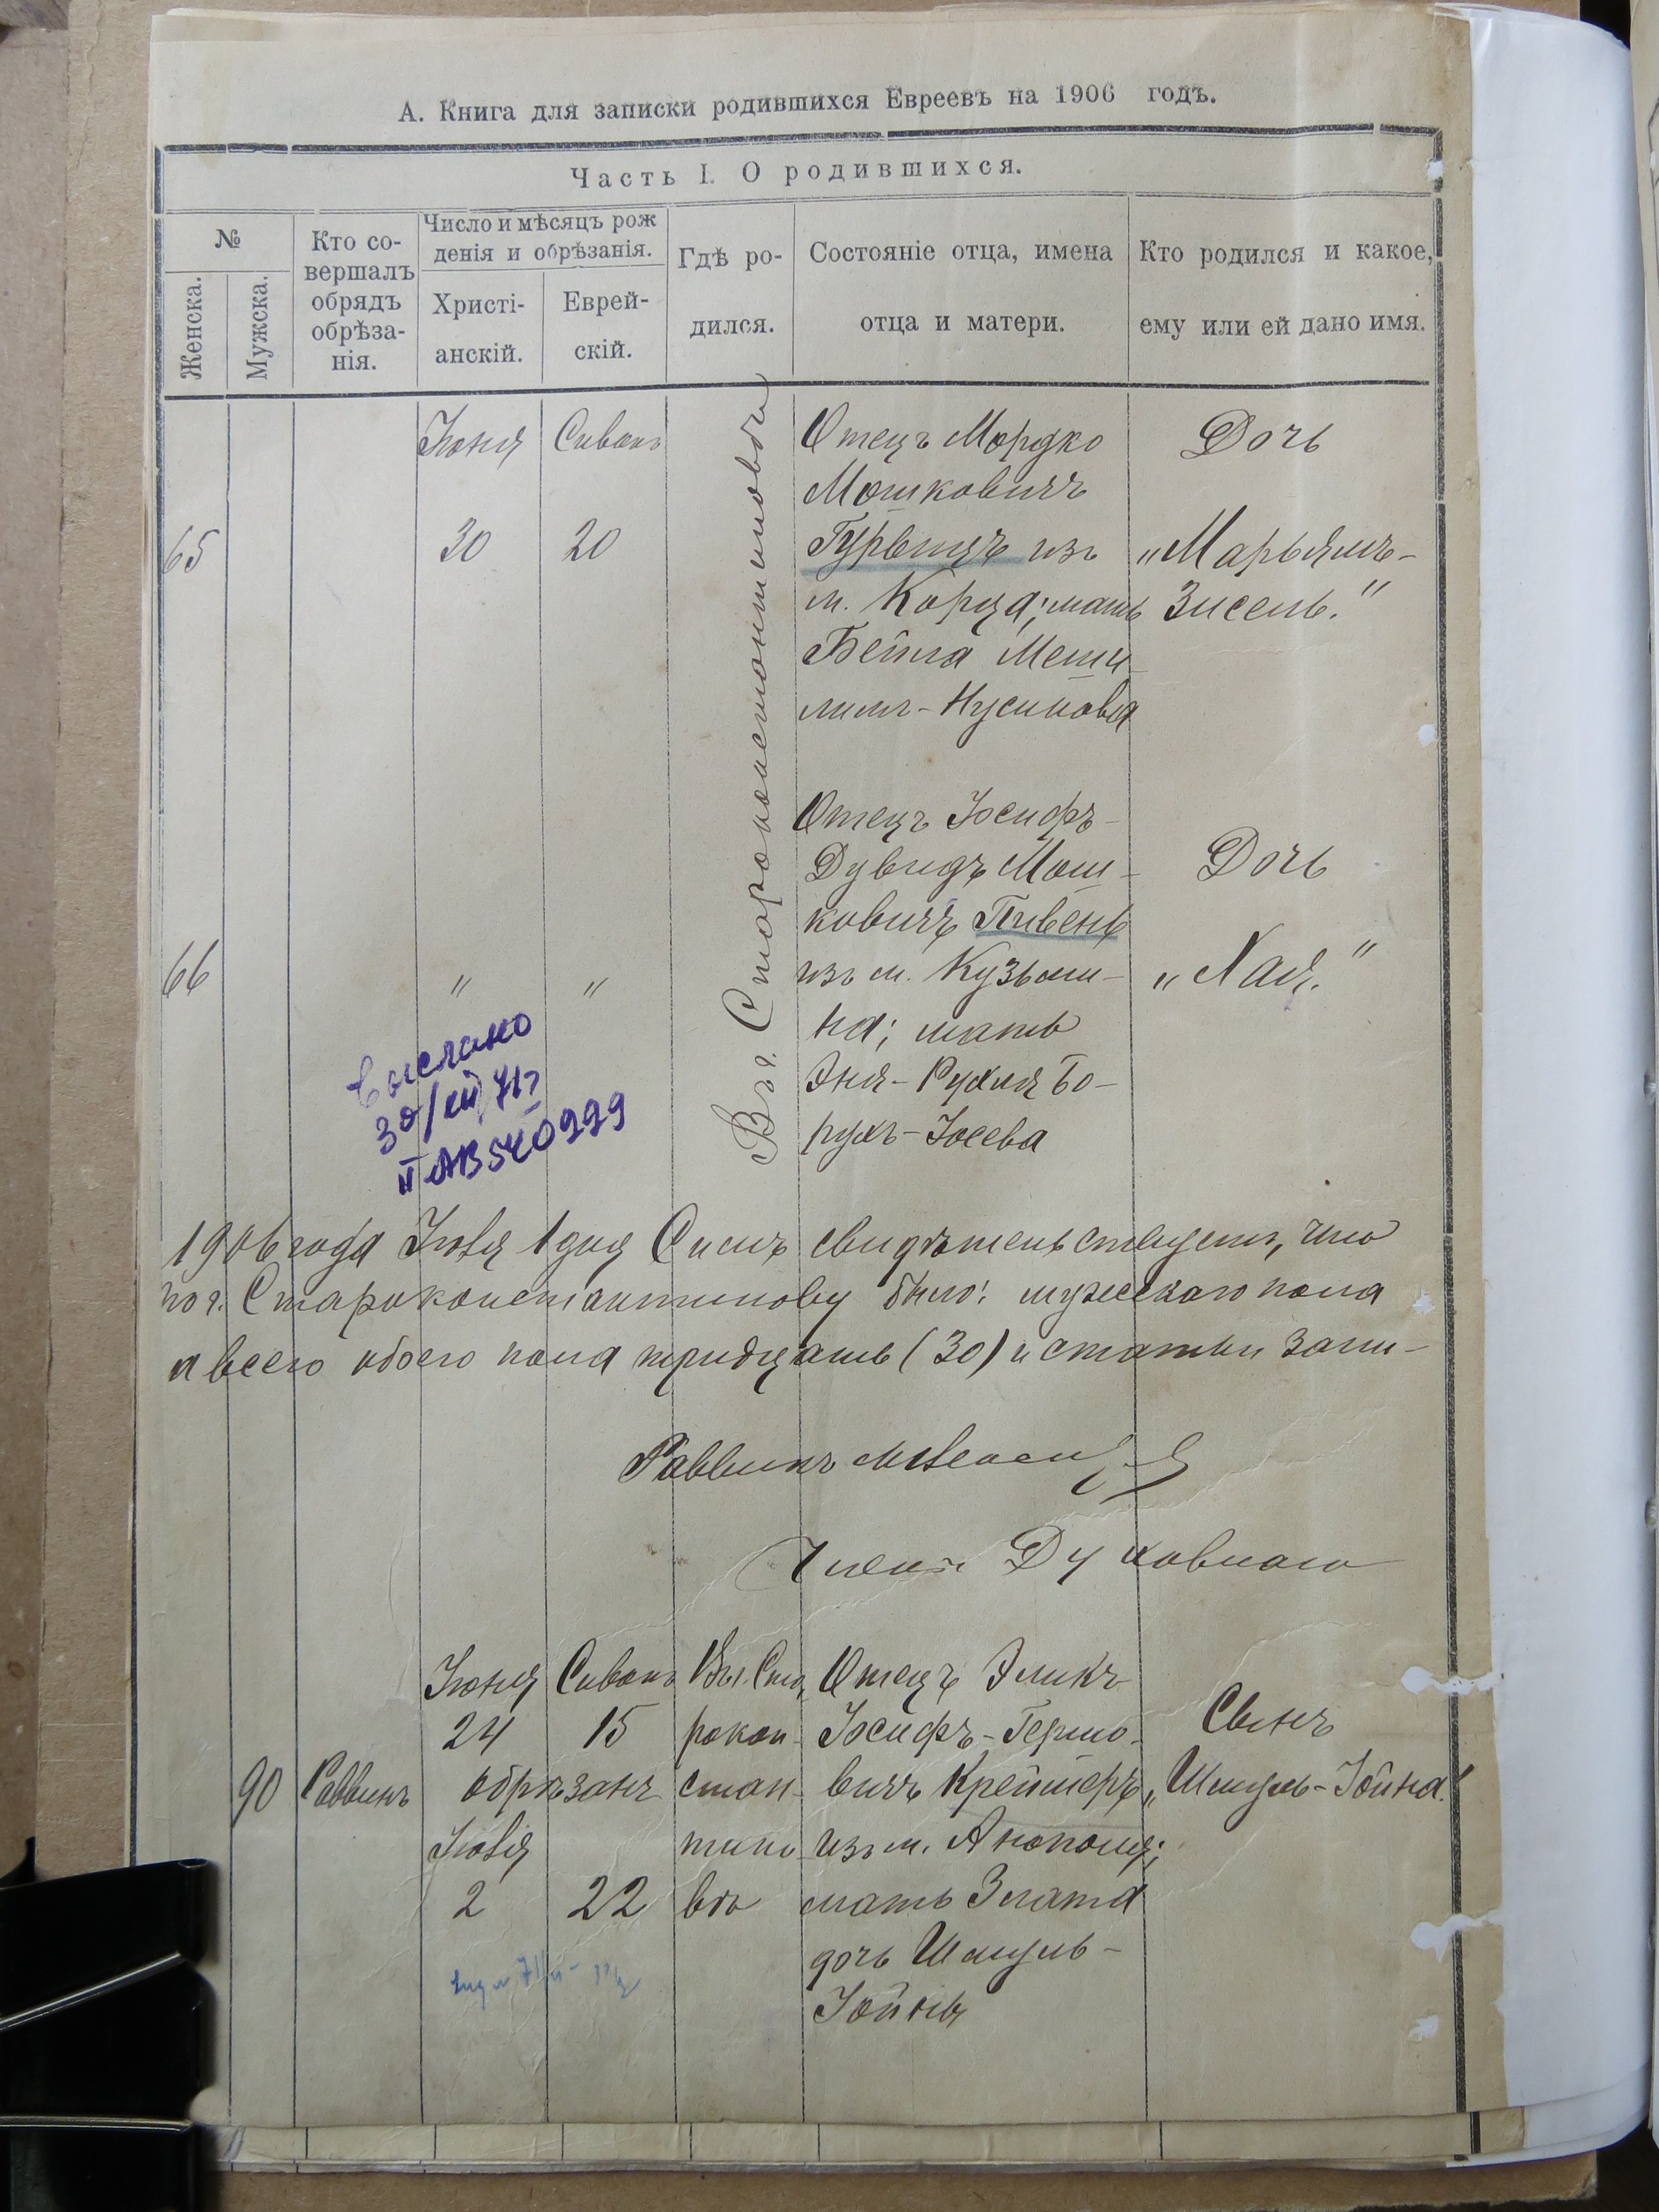 А. Книга для записки родившихся Евреевъ на 1906 годъ.
Часть I. О родившихся.
№
Женска.
Мужска.
Кто со-
вершалъ
обрядъ
обрѣза-
нія.
Число и мѣсяцъ рож
денія и обрѣзанія.
Христі-
анскій.
Еврей-
скій.
Гдѣ ро-
дился.
Состояніе отца, имена
отца и матери.
Кто родился и какое,
ему или ей дано имя.
65
Іюня
30
Сиванъ
20
Въ г. Староконстантиновѣ
Отецъ Мордко
Мошковичъ
Гурвицъ изъ
м. Корца; мать
Бейла Меши-
лимъ-Нусинова
Дочь
„Марьямъ-
Зисель."
66
"
"
Отецъ Іосифъ-
Дувидъ Мош-
ковичъ Пивень
изъ м. Кузьми-
на; мать
Эня-Рухля Бо-
рухъ-Іосева
Дочь
„Хая."
выслано
30/XII 71г
II АВ 540229
1906 года Іюля 1 дня Симъ свидѣтельствуемъ, что
по г. Староконстантинову было: мужескаго пола
а всего обоего пола тридцать (30) и статьи запи-
Раввинъ
Члены Духовнаго
90
Раввинъ
Іюня
24
Сиванъ
15
обрѣзанъ
Іюля
2
22
Въ г. Ста
рокон-
стан-
тино
вѣ
Отецъ Эликъ
Іосифъ-Гершо-
вичъ Креймеръ
изъ м. Аннополя;
мать Злата
дочь Шмуль-
Іойны
Сынъ
„Шмуль-Іойна."